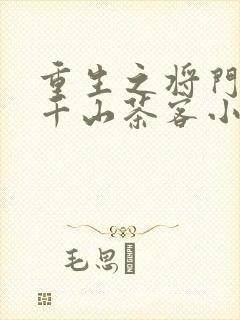 重生之将门
千山茶客小
毛思